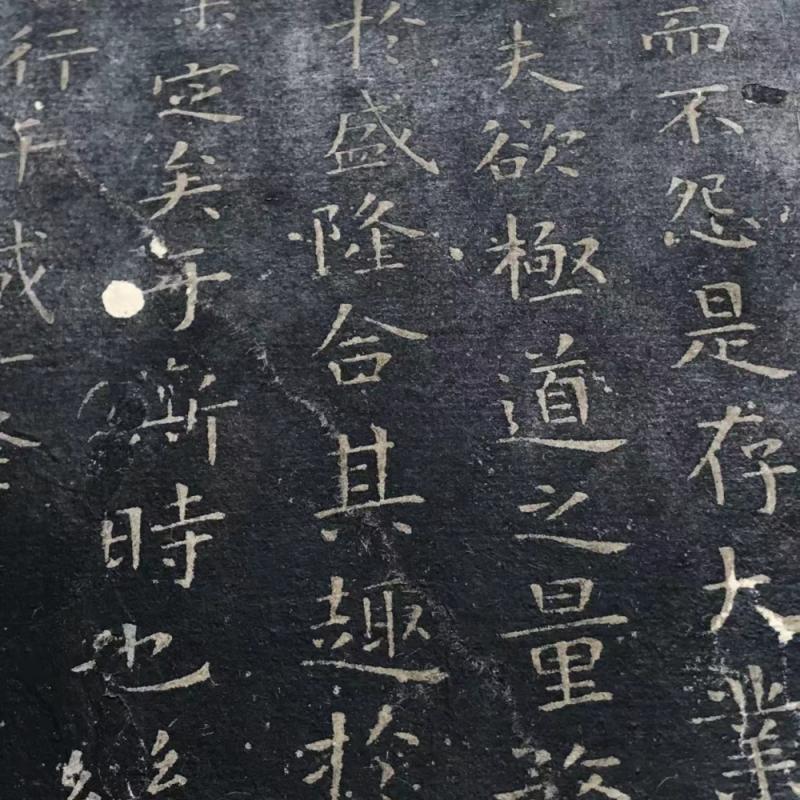 而不怨是存大業
夫欲極道之量務
於盛隆合其趣於
定矣于斯時也
行千載一隆